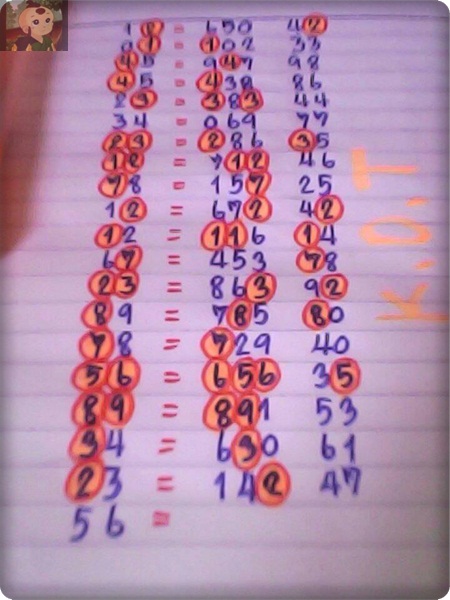 12 = 650 42
01 = 102 33
45 = 947 98
45 = 438 86
23 = 383 44
34 = 069 77
23 = 286 35
12 = 712 46
78 = 157 25
12 = 672 42
12 = 116 14
67 = 453 78
23 = 863 92
89 = 785 80
78 = 729 40
56 = 656 35
89 = 891 53
34 = 630 61
23 = 142 47
56 =
K.D.T